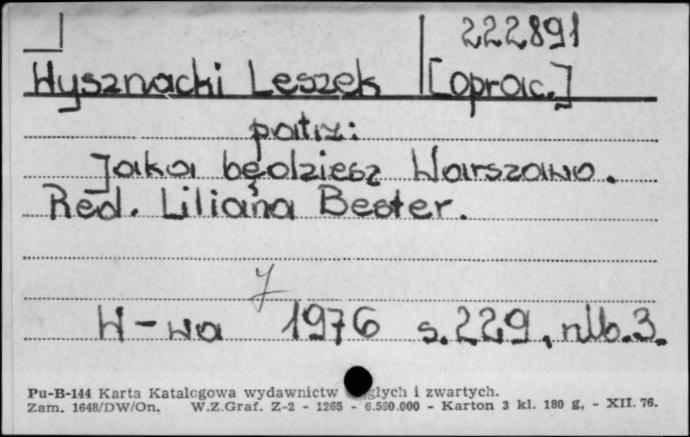 222891
Wysznacki Leszek [oprac.]
patrz:
Jaka będziesz Warszawo.
Red. Liliana Bester.
W-wa 1976 s. 229, nlb. 3.
Pu-B-144 Karta Katalogowa wydawnictw głych i zwartych.
Zam. 1648/DW/On. W.Z.Graf. Z-2 - 1265 - 6.590.000 - Karton 3 kl. 180 g, - XII. 76.